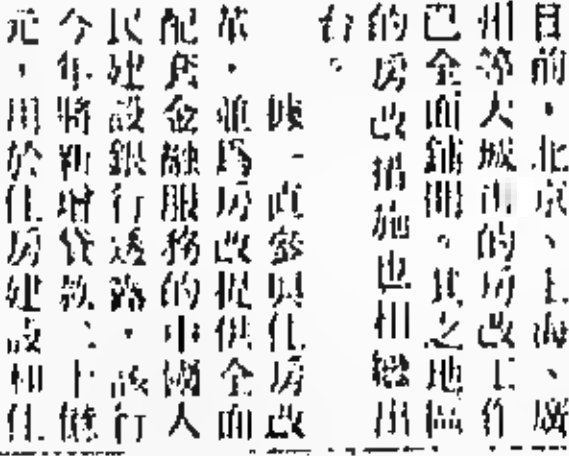 目前，北京、上海、廣
州等大城市的房改工作
已全面鋪開。其之地區
的房改措施也相繼出
台。
據一直參與住房改
革，並爲房改提供全面
配套金融服務的中國人
民建設銀行透露，該行
今年將新增貸款二十億
元，用於住房建設和住